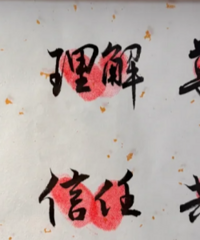 理解
信任